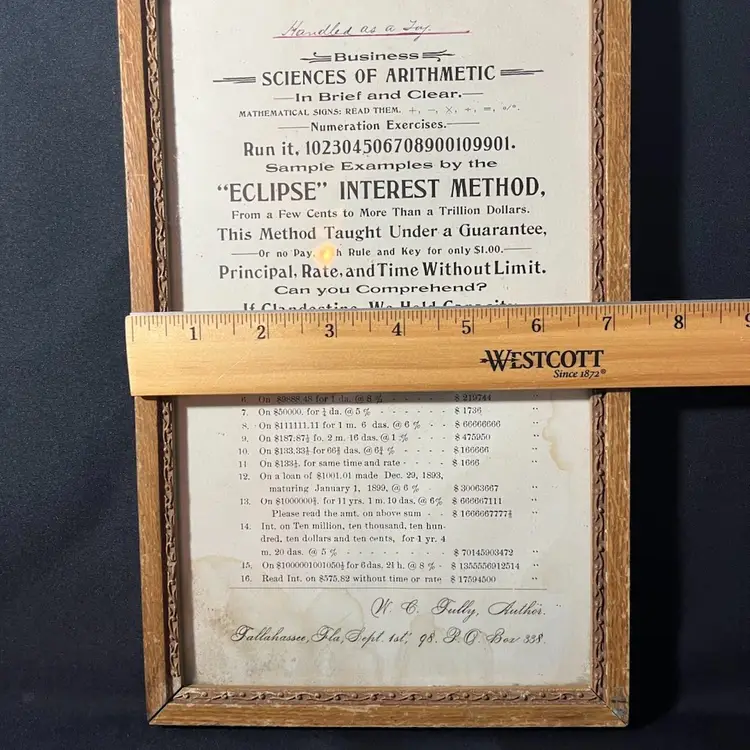 Handled as a Toy.
Business
SCIENCES OF ARITHMETIC
In Brief and Clear.
MATHEMATICAL SIGNS: READ THEM. +, −, ×, ÷, =, %.
Numeration Exercises.
Run it, 102304506708900109901.
Sample Examples by the
"ECLIPSE" INTEREST METHOD,
From a Few Cents to More Than a Trillion Dollars.
This Method Taught Under a Guarantee,
Or no Pay. Rule and Key for only $1.00.
Principal, Rate, and Time Without Limit.
Can you Comprehend?
If Clandestine, We Hold Capacity
1 2 3 4 5 6 7 8 9
WESTCOTT
Since 1872®
6. On $9888.48 for 1 da. @ 8 % - - - - $ 219744 "
7. On $50000. for ¼ da. @ 5 % - - - - - - $ 1736 "
8. On $111111.11 for 1 m. 6 das. @ 6 % - - $ 66666666 "
9. On $187.87½ fo. 2 m. 16 das. @ 1 % - - $ 475950 "
10. On $133.33⅓ for 66⅔ das. @ 6¾ % - - - $ 166666 "
11. On $133⅓. for same time and rate - - - - $ 1666 "
12. On a loan of $1001.01 made Dec. 29, 1893,
maturing January 1, 1899, @ 6 % - $ 30063667 "
13. On $1000000⅔. for 11 yrs. 1 m. 10 das. @ 6% $ 666667111
Please read the amt. on above sum - - $ 1666667777⅔ "
14. Int. on Ten million, ten thousand, ten hun-
dred, ten dollars and ten cents, for 1 yr. 4
m. 20 das. @ 5 % - - - - - - - - $ 70145903472 "
15. On $1000001001050½ for 6 das. 21 h. @ 8 % - $ 1355556912514 "
16. Read Int. on $575.82 without time or rate $ 17594500 "
W. C. Tully, Author.
Tallahassee, Fla, Sept. 1st, 98. P.O. Box 338.